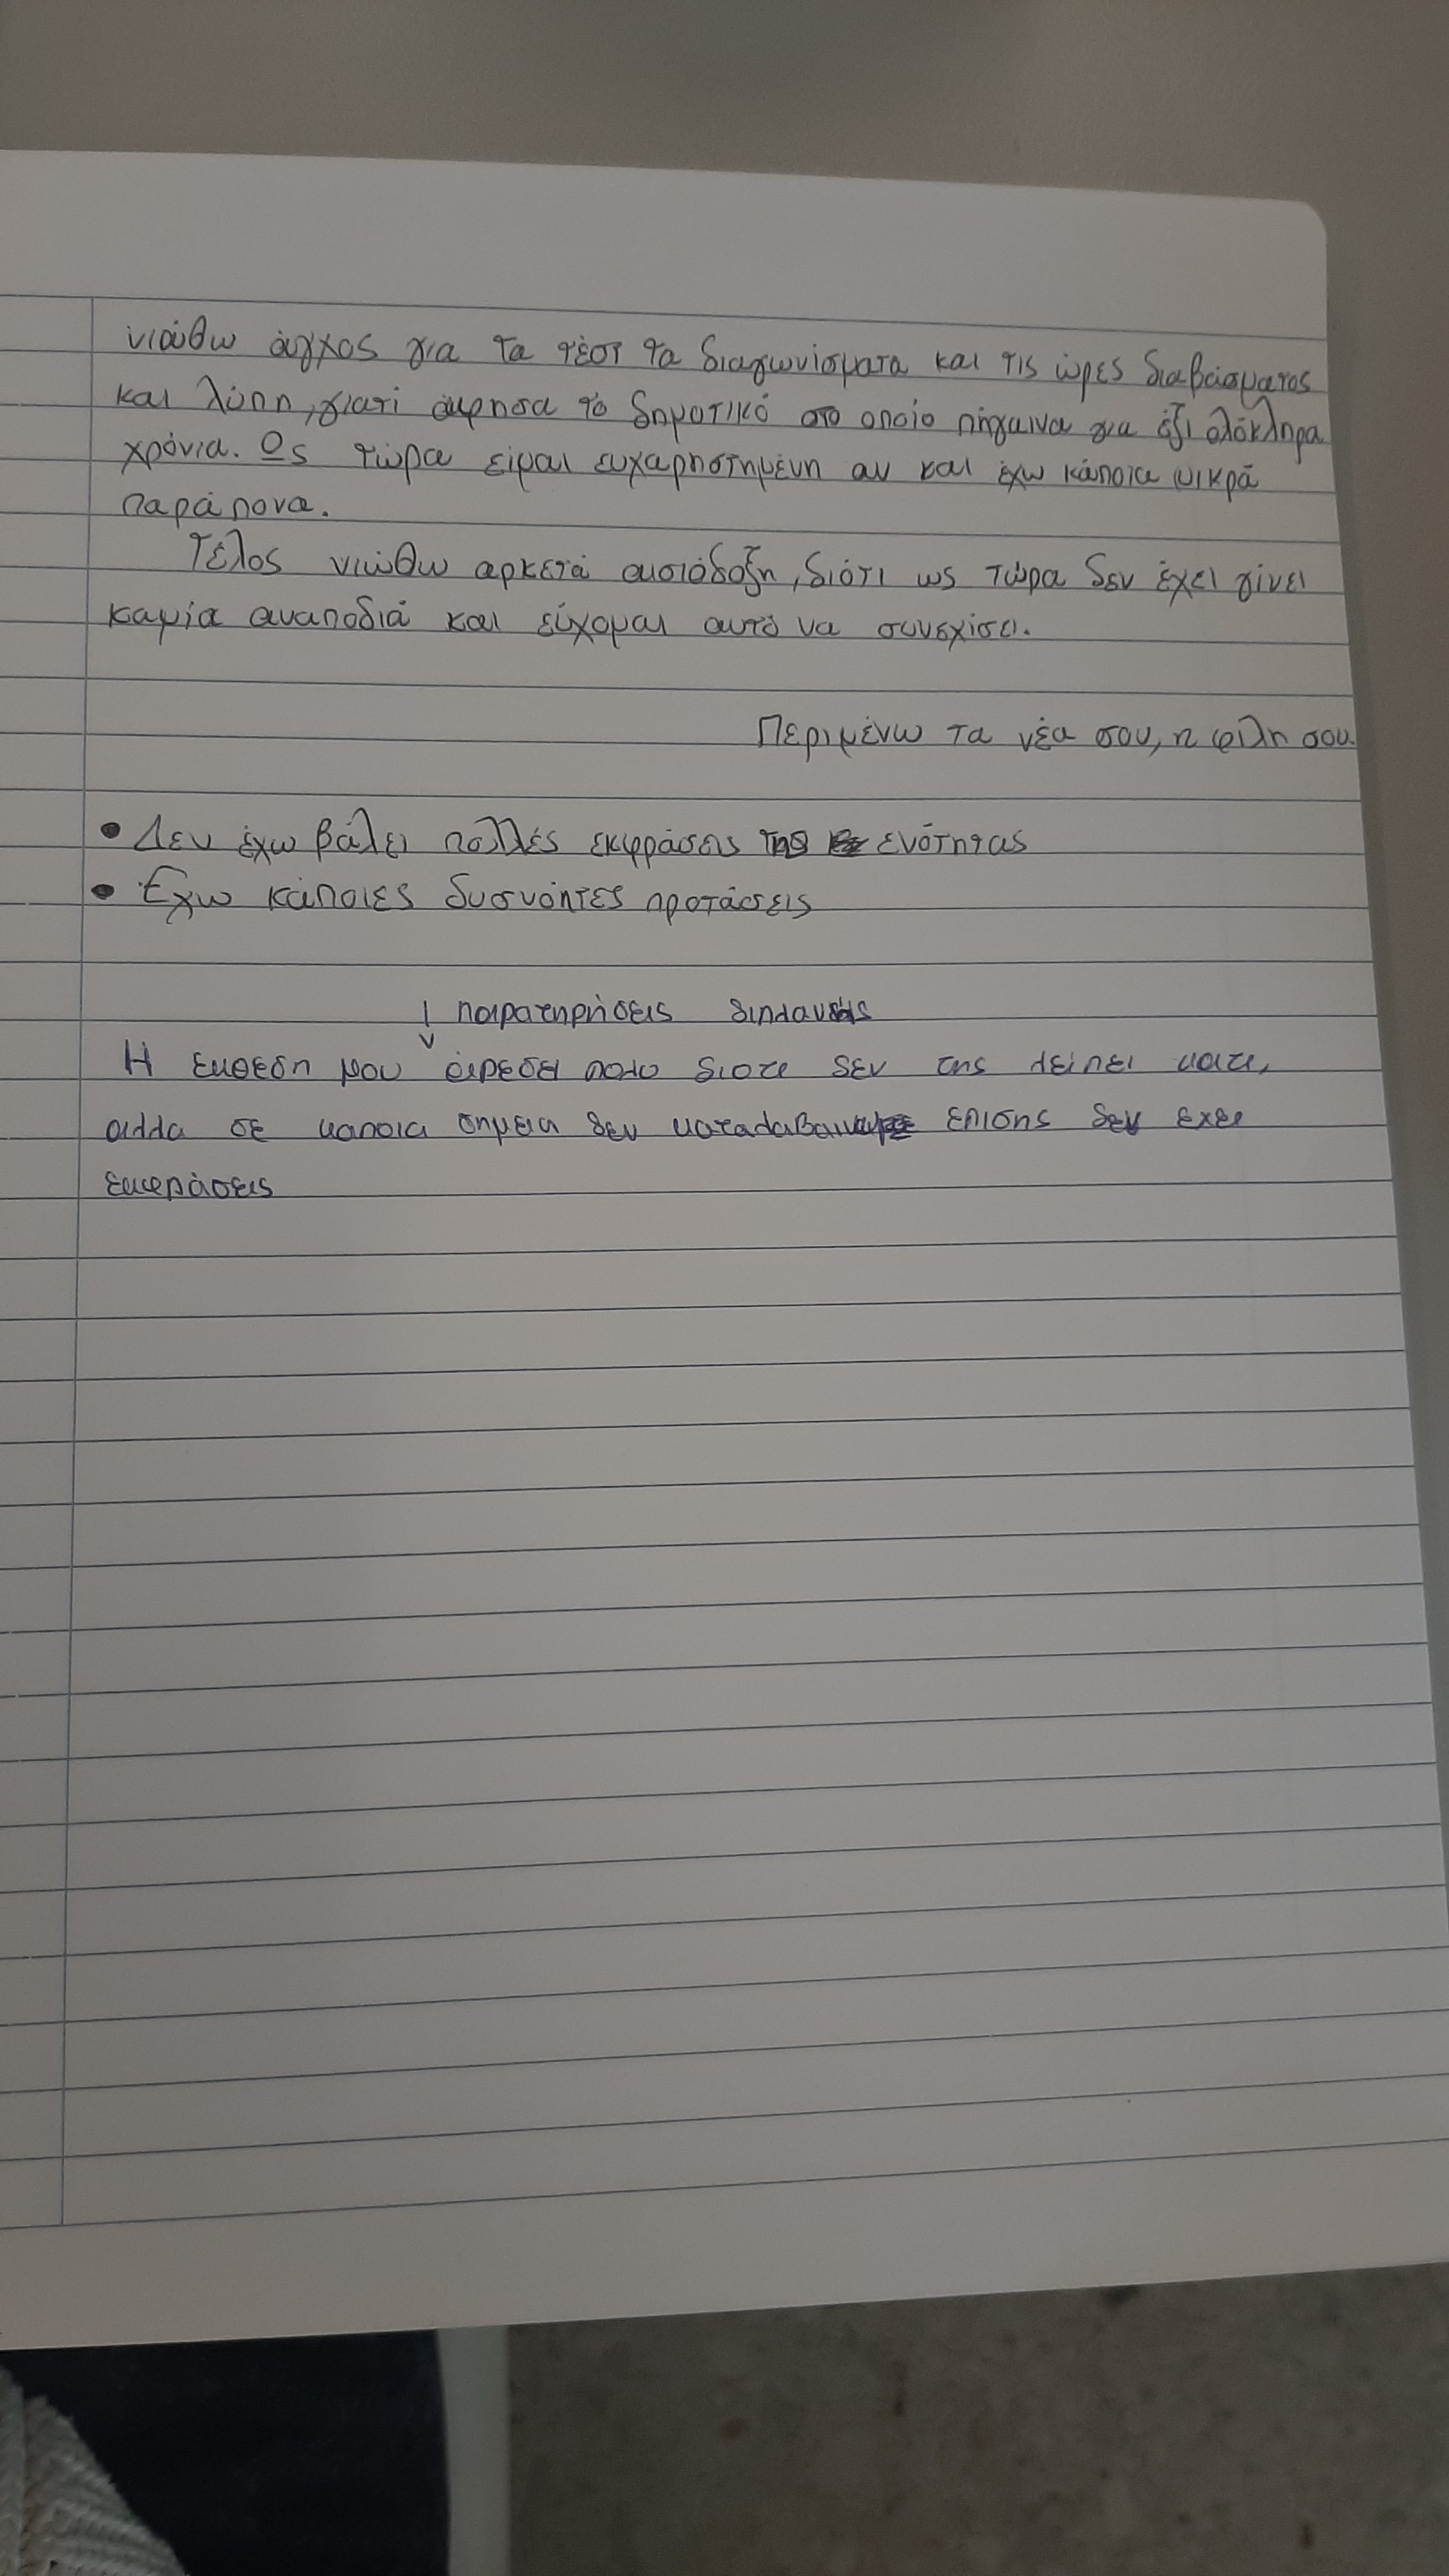 νιώθω άγχος για τα τέστ τα διαγωνίσματα και τις ώρες διαβάσματος
και λύπη, γιατί άφησα το δημοτικό στο οποίο πήγαινα για έξι ολόκληρα
χρόνια. Ως τώρα είμαι ευχαρηστημένη αν και έχω κάποια μικρά
παράπονα.
Τέλος νιώθω αρκετά αισιόδοξη, διότι ως τώρα δεν έχει γίνει
καμία αναποδιά και εύχομαι αυτό να συνεχίσει.
Περιμένω τα νέα σου, η φίλη σου.
• Δεν έχω βάλει πολλές εκφράσεις της ενότητας
• Έχω κάποιες δυσνόητες προτάσεις
↓ παρατηρήσεις διπλανής
Η εκθεση μου άρεσει πολυ διοτι δεν της λείπει κατι,
αλλα σε καποια σημεια δεν καταλαβαινω επισης δεν εχει
εκφράσεις